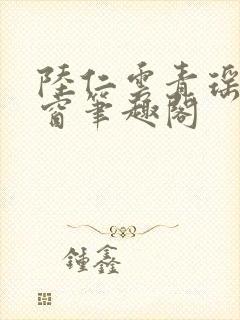 陸仁雲青瑶
窗筆趣閣
鍾鑫